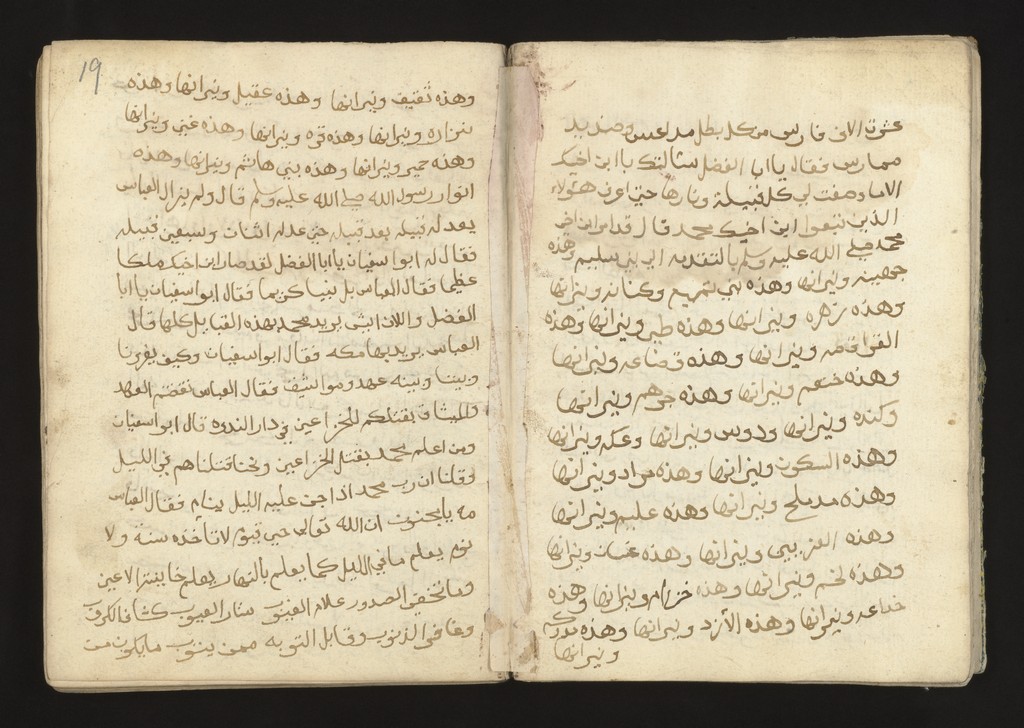 عشرة الاف فارس من كل بطل مدعس وصنديد
ممارس فقال يا ابا الفضل سئالتك يا ابن اخيك
الاما وصفت لي كل قبيلة ونارها حتي اعرف هؤلاء
الذين تبعوا ابن اخيك محمد قال قد امر ابن اخي
محمد صلي الله عليه وسلم بالتقدمه الي بني سليم وهذه
جهينه ونيرانها وهذه بني تميم وكنانه ونيرانها
وهذه زهره ونيرانها وهذه طي ونيرانها وهذه
ونيرانها وهذه قضاعه ونيرانها
وهذه خثعم ونيرانها وهذه جرهم ونيرانها
وكنده ونيرانها ودوس ونيرانها وعكه ونيرانها
وهذه السكون ونيرانها وهذه مراد ونيرانها
وهذه مدلج ونيرانها وهذه عليم ونيرانها
وهذه ونيرانها وهذه غسان ونيرانها
وهذه لخم ونيرانها وهذه خزام ونيرانها وهذه
خذاعه ونيرانها وهذه الأزد ونيرانها وهذه
ونيرانها
19
وهذه ثقيف ونيرانها وهذه عقيل ونيرانها وهذه
فزاره ونيرانها وهذه قره ونيرانها وهذه غني ونيرانها
وهذه حمير ونيرانها وهذه بني هاشم ونيرانها وهذه
انوار رسول الله صلي الله عليه وسلم قال ولم يزال العباس
يعد له قبيله بعد قبيله حتي عد له اثنات وسبعين قبيله
فقال له ابو اسفيان يا ابا الفضل لقد صار ابن اخيك ملكا
عظي فقال العباس بل نبيا كريما فقال ابو اسفيان يا ابا
الفضل واللان ايش يريد محمد بهذه القبايل كلها قال
العباس يريد بها مكه فقال ابو اسفيان وكيف يغزونا
وبيننا وبينه عهد ومواثيق فقال العباس نقضتم العهد
والميثاق بقتلكم الخزاعين في دار الندوه قال ابو اسفيان
ومن اعلم محمد بقتل الخزاعين ونحنا قتلناهم في الليل
وقلنا ان رب محمد اذا جن عليه الليل ينام فقال العباس
مه يا مجنون ان الله تعالي حي قيوم لا تاخذه سنة ولا
نوم يعلم ما في الليل كما يعلم بالنهار يعلم خاينة الاعين
وما تخفي الصدور علام الغيوب ستار العيوب كشاف الكروب
وغافر الذنوب وقابل التوبه ممن يتوب ما يكون من